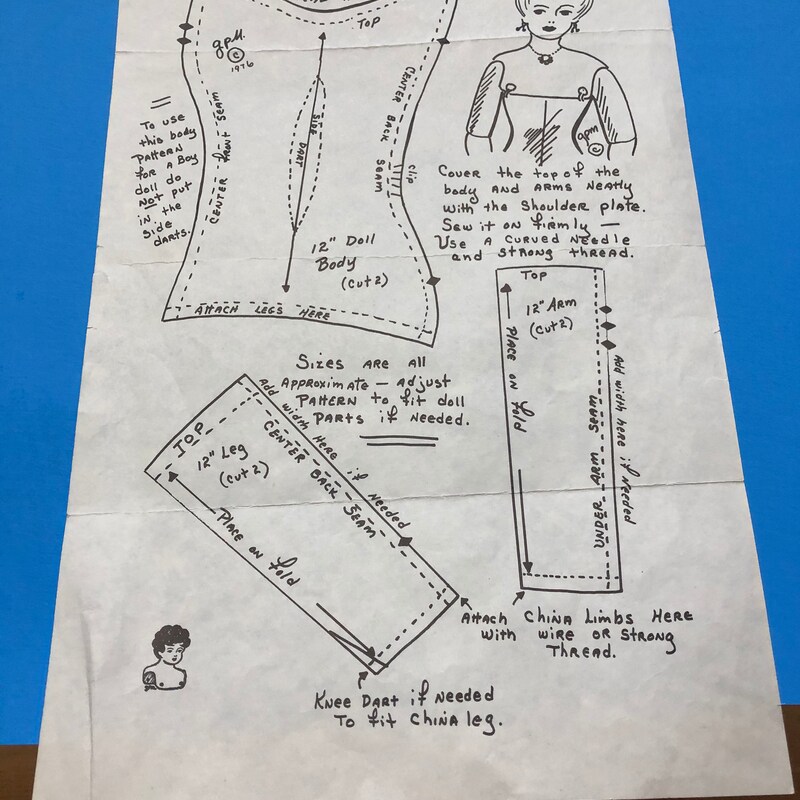 TOP
g.p.M.
©
1976
To use
this body
PATTERN
for a Boy
doll do
NOT put
in the
side
darts.
CENTER FRONT SEAM
SIDE DART
CENTER BACK SEAM
clip
12" Doll
Body
(cut 2)
ATTACH LEGS HERE
gpm
©
Cover the top of the
body AND ARMS NEATly
with the shoulder plate.
Sew it on firmly —
Use A curved Needle
and strong thread.
TOP
12" ARM
(cut 2)
PLACE ON fold
UNDER ARM SEAM
Add width here if needed
Sizes are all
Approximate — adjust
PATTERN to fit doll
PARTS if needed.
TOP
12" Leg
(cut 2)
Add width HERE if needed
CENTER BACK SEAM
PLACE ON fold
Attach CHINA Limbs HERE
with wire or strong
Thread.
KNEE DART if Needed
To fit CHINA leg.